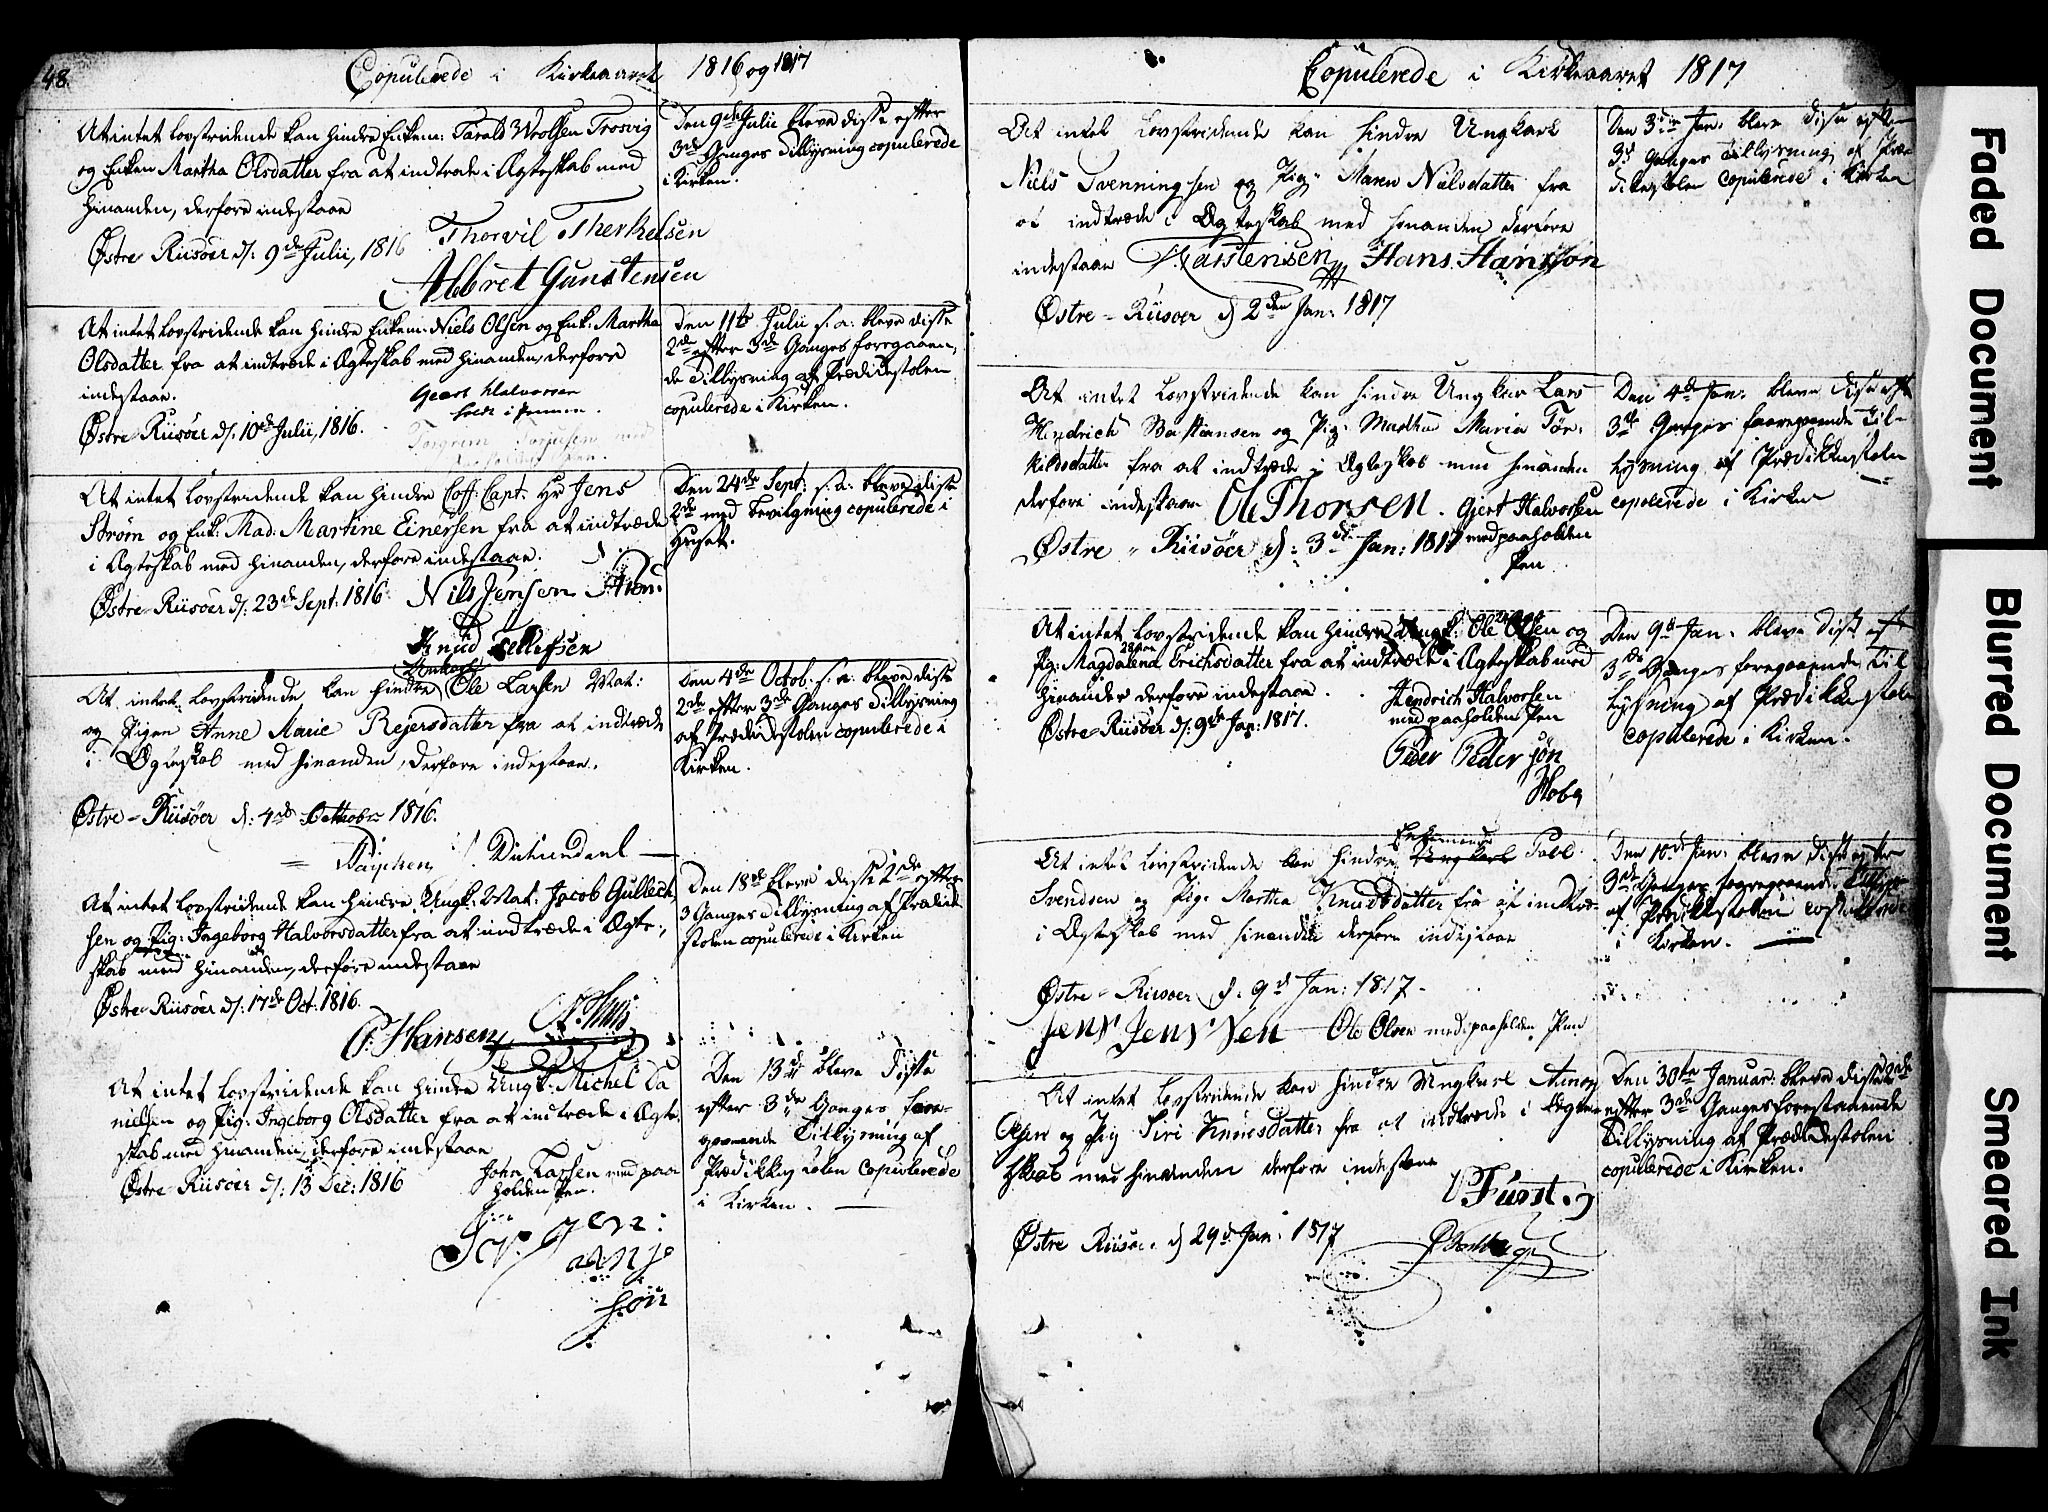 48.
Copulerede i Kirkeaaret 1816 og 1817
At intet lovstridende kan hindre Enkem: Tarald Woolsen Trosvig
og Enken Martha Olsdatter fra at indtræde i Ægteskab med
hinanden, derfore indestaae
Østre-Riisöer d: 9de Julii, 1816 Thorvil Therkelsen
Albret Gunstensen
Den 9de Julii bleve disse efter
3de Ganges Tillysning copulerede
i Kirken.
At intet lovstridende kan hindre Enkem: Niels Olsen og Enk: Martha
Olsdatter fra at indtræde i Ægteskab med hinanden, derfore
indestaae.
Geert Halvorsen
holdt i Pennen.
Østre-Riisöer d: 10de Julii, 1816.
Den 11te Julii s. a. bleve disse
2de efter 3de Ganges foregaaen
de Tillysning af Prædikestolen
copulerede i Kirken.
At intet lovstridende kan hindre Coff. Capt: Hr Jens
Strøm og Enk: Mad: Martine Einersen fra at indtræde
i Ægteskab med hinanden, derfore indestaae.
Østre-Riisöer d: 23de Sept: 1816. Nils Jensen
Knud Tellefsen
Den 24de Sept: s. a. bleve disse
2de med Bevilgning copulerede i
Huset.
At intet lovstridende kan hindre Ole Larsen Mat:
og Pigen Anne Marie Rejersdatter fra at indtræde
i Ægteskab med hinanden, derfore indestaae.
Østre-Riisöer d: 4de Octhober 1816.
Den 4de Octob: s. a. bleve disse
2de efter 3de Ganges Tillysning
af Prædikestolen copulerede i
Kirken.
At intet lovstridende kan hindre Ungk: Mat: Jacob Gullech
sen og Pig: Ingeborg Halvorsdatter fra at indtræde i Ægte-
skab med hinanden, derfore indestaae
Østre-Riisöer d: 17de Oct: 1816.
P. Hansen
Den 18de bleve disse 2de efter
3 Ganges Tillysning af Prædike
stolen copulerede i Kirken
At intet lovstridende kan hindre Ungk: Michel Da
nielsen og Pig: Ingeborg Olsdatter fra at indtræde i Ægte
skab med hinanden, derfore indestaae
Østre-Riisöer d: 13 Dec: 1816
Johan Larsen med paa
holden Pen.
Den 13de bleve disse
efter 3de Ganges fore-
gaaende Tillysning af
Prædikkestolen copulerede
i Kirken.
Copulerede i Kirkeaaret 1817
At intet Lovstridende kan hindre Ungkarl
Niels Svenningsen og Pig: Maren Nielsdatter fra
at indtræde i Ægteskab med hinanden derfore
indestaae Karstensen Hans Hansson
Østre-Riisoer d 2den Jan: 1817
Den 3die Jan: bleve disse efter
3de Ganges Tillysning af Præ
dikestolen copulerede i Kirken
At intet Lovstridende kan hindre Ungkar Lars
Hendrich Bastiansen og Pig: Marthe Maria Tør-
kildsdatter fra at indtræde i Ægteskab med hinanden
derfore indestaae Ole Thorsen. Gjert Halvorsen
med paaholden
Pen
Østre-Riisöer d: 3die Jan: 1817
Den 4de Jan: bleve disse efter
3de Ganges foregaaende Til-
lysning af Prædikkestolen
copolerede i Kirken
At intet lovstridende kan hindre Ungk: Ole Olsen og
Pig: Magdalena Erichsdatter fra at indtræde i Ægteskab med
hinanden derfore indestaae.
Østre-Riisöer d: 9de Jan: 1817.
Hendrich Halvorsen
med paaholden Pen
Peder Pedersøn
Den 9de Jan: bleve disse efter
3de Ganges foregaaende Til
lysning af Prædikkestolen
copulerede i Kirken.
Enkemand
At intet lovstridende kan hindre Ungkarl
Svendsen og Pig: Martha Knudsdatter fra at indtræ-
i Ægteskab med hinanden derfore indestaae
Østre-Riisoer d: 9d Jan: 1817.
Jens Jenssen Ole Olsen med paaholden Pen
Den 10de Jan: bleve disse efter
3de Ganges foregaaende Tillysn
af Prædikkestolen copulerede
i Kirken.
At intet lovstridende kan hindre Ungkarl
Olsen og Pig Siri Knudsdatter fra at indtræde i Ægte-
skab med hinanden derfore indestaae
Fürst
Østre Riisoe. d 29de Jan: 1817
Den 30te Januar: bleve disse 2de
efter 3de Ganges forestaaende
Tillysning af Prædikestolen
copulerede i Kirken.
Faded Document
Blurred Document
Smeared Ink